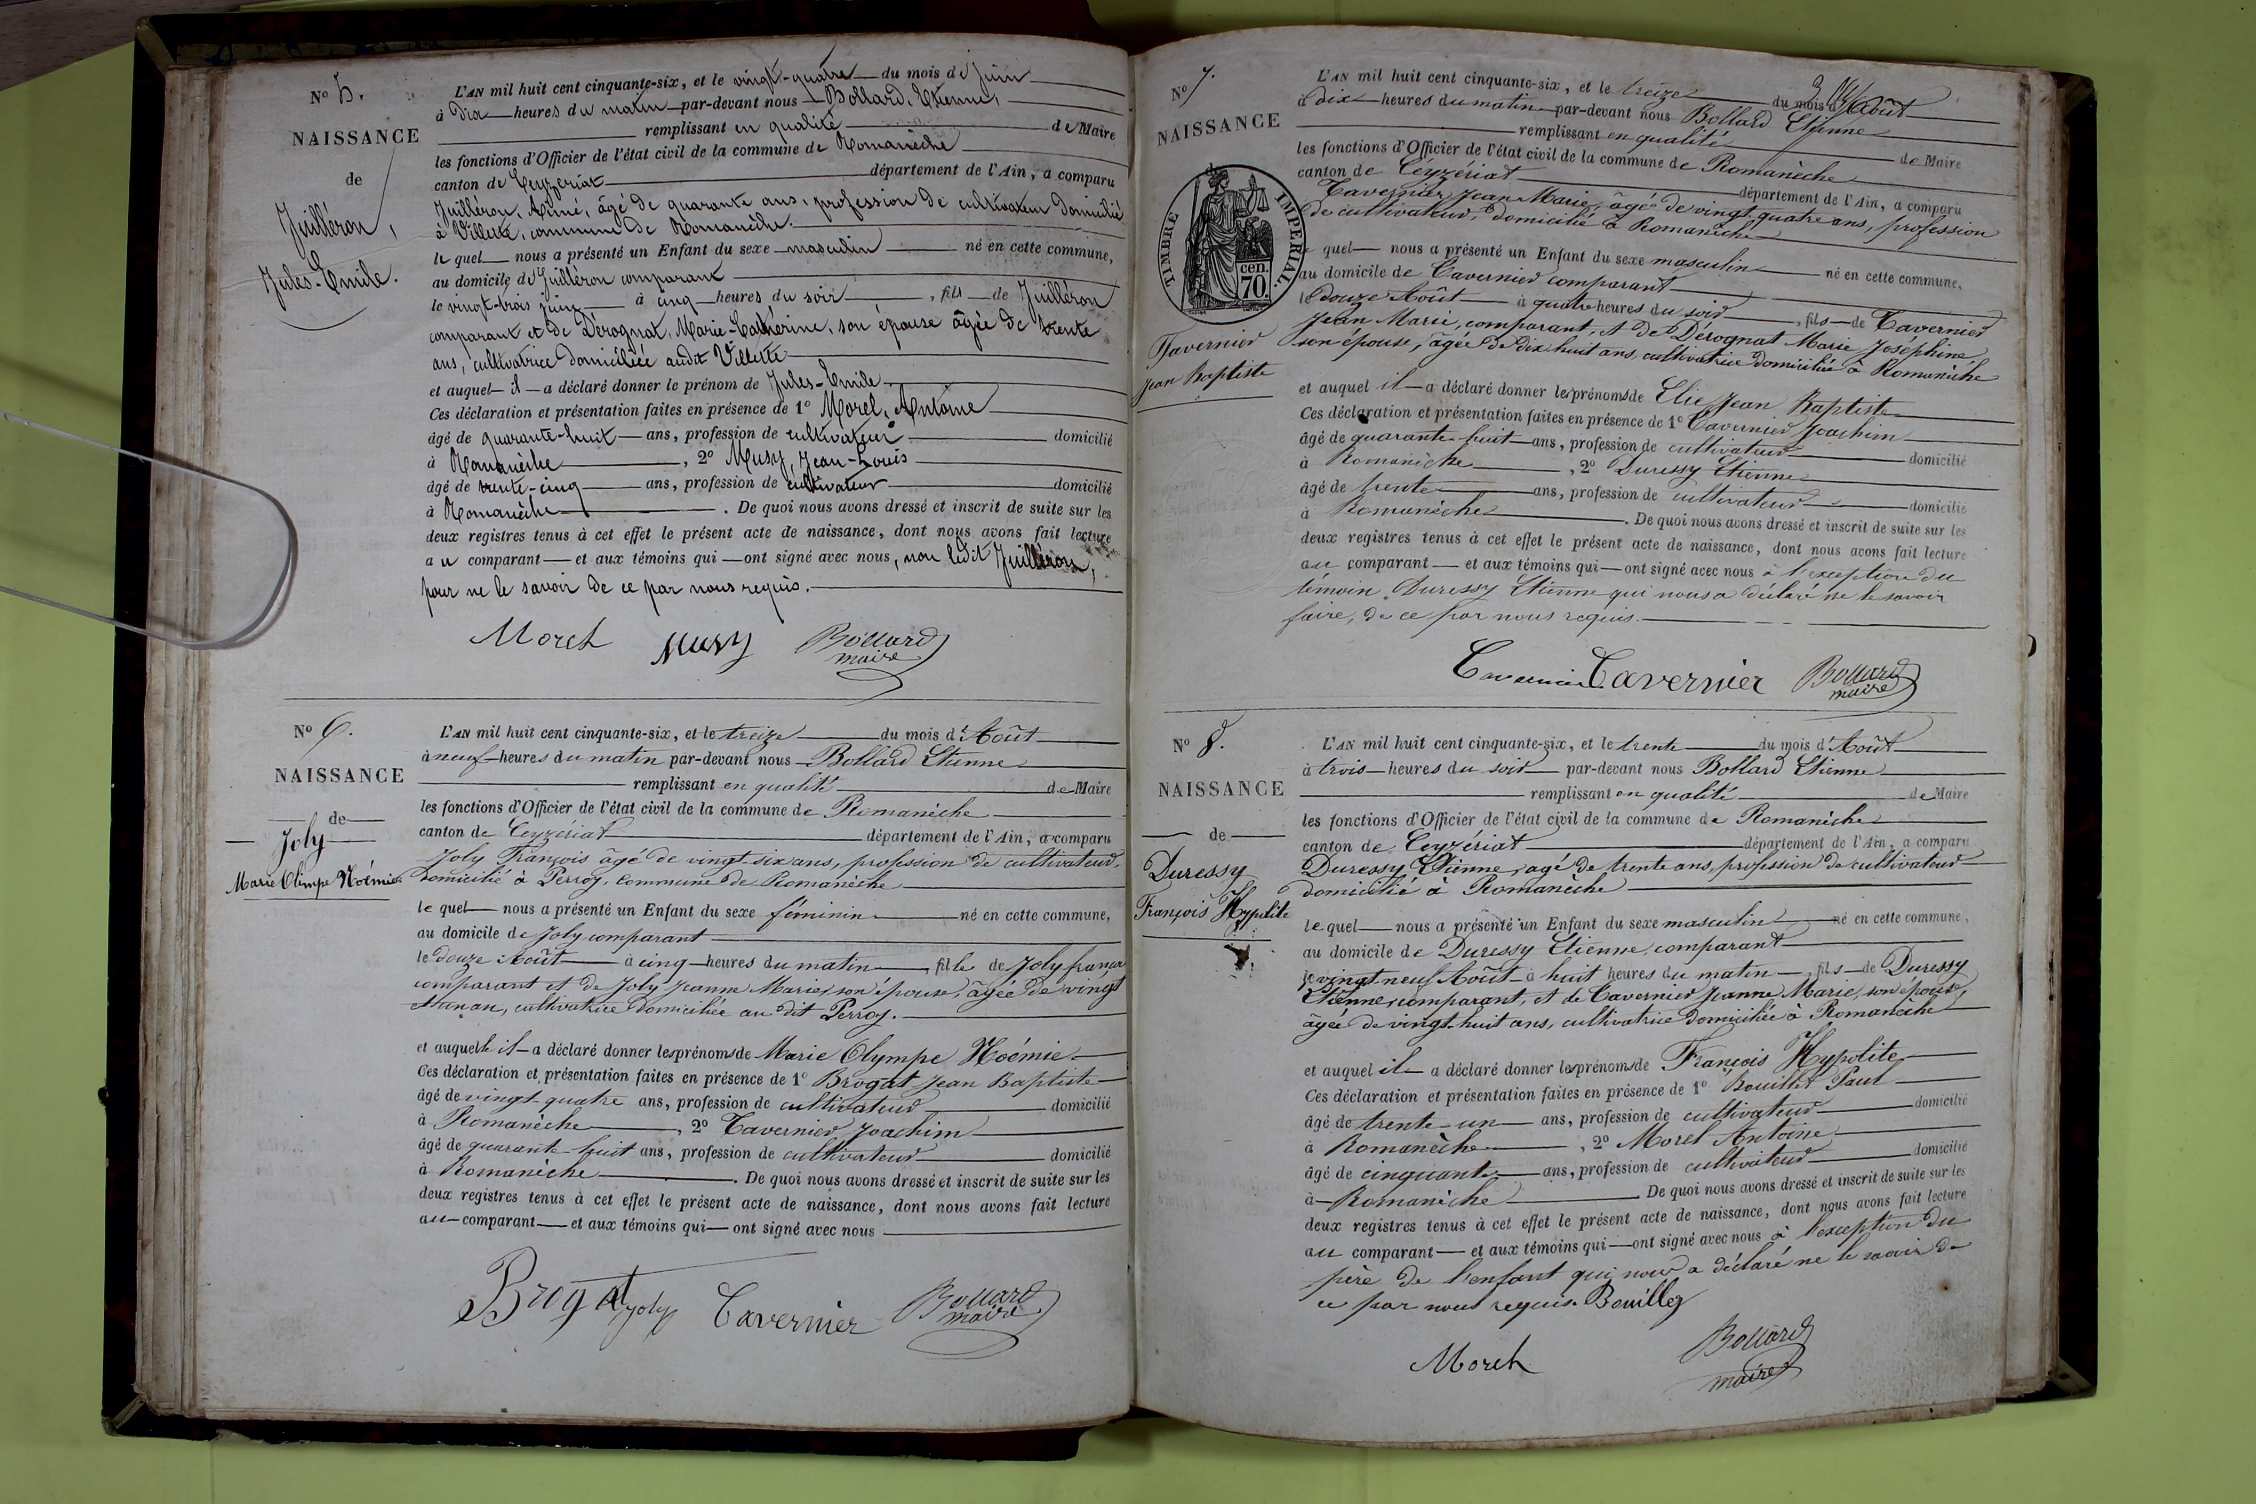 No 5.
NAISSANCE
de
Juilléron,
Jules-Emile.
L'AN mil huit cent cinquante-six, et le vingt-quatre du mois de Juin
à Dix heures du matin par-devant nous Bollard, Etienne,
remplissant en qualité de Maire
les fonctions d'Officier de l'état civil de la commune de Romanèche
canton de Ceyzeriat département de l'Ain, a comparu
Juilléron, Aimé, âgé de quarante ans, profession de cultivateur domicilié
à Villette, commune de Romanèche.
le quel nous a présenté un Enfant du sexe masculin né en cette commune,
au domicile de Juilléron comparant
le vingt-trois juin à cinq heures du soir, fils de Juilléron
comparant et de Dérognat, Marie-Catherine, son épouse âgée de trente
ans, cultivatrice domiciliée audit Villette
et auquel il a déclaré donner le prénom de Jules-Emile.
Ces déclaration et présentation faites en présence de 1o Morel, Antoine
âgé de quarante-huit ans, profession de cultivateur domicilié
à Romanèche, 2o Musy, Jean-Louis
âgé de trente-cinq ans, profession de cultivateur domicilié
à Romanèche. De quoi nous avons dressé et inscrit de suite sur les
deux registres tenus à cet effet le présent acte de naissance, dont nous avons fait lecture
au comparant et aux témoins qui ont signé avec nous, non ledit Juilléron,
pour ne le savoir de ce par nous requis.
Morel Musy Bollard
maire
No 6.
NAISSANCE
de
Joly
Marie Olimpe Noémie.
L'AN mil huit cent cinquante-six, et le treize du mois d'Août
à neuf heures du matin par-devant nous Bollard Etienne
remplissant en qualité de Maire
les fonctions d'Officier de l'état civil de la commune de Romanèche
canton de Ceyzériat département de l'Ain, a comparu
Joly François âgé de vingt-six ans, profession de cultivateur,
domicilié à Perroy, commune de Romanèche
le quel nous a présenté un Enfant du sexe féminin né en cette commune,
au domicile de Joly comparant
le douze Août à cinq heures du matin, fille de Joly françois
comparant et de Joly Jeanne Marie, son épouse, âgée de vingt
et un an, cultivatrice domiciliée au dit Perroy.
et auquelle il a déclaré donner les prénoms de Marie Olympe Noémie
Ces déclaration et présentation faites en présence de 1o Brogat Jean Baptiste
âgé de vingt-quatre ans, profession de cultivateur domicilié
à Romanèche, 2o Tavernier Joachim
âgé de quarante-huit ans, profession de cultivateur domicilié
à Romanèche. De quoi nous avons dressé et inscrit de suite sur les
deux registres tenus à cet effet le présent acte de naissance, dont nous avons fait lecture
au comparant et aux témoins qui ont signé avec nous
Brogat Joly Tavernier Bollard
maire
No 7.
NAISSANCE
de
TIMBRE IMPERIAL.
cen.
70.
Tavernier
Jean Baptiste
L'AN mil huit cent cinquante-six, et le treize du mois d'Août
à dix heures du matin par-devant nous Bollard Etienne
remplissant en qualité de Maire
les fonctions d'Officier de l'état civil de la commune de Romanèche
canton de Céyzériat département de l'Ain, a comparu
Tavernier Jean Marie, âgé de vingt quatre ans, profession
de cultivateur, domicilié à Romanèche
quel nous a présenté un Enfant du sexe masculin né en cette commune,
au domicile de Tavernier comparant
le douze Août à quatre heures du soir, fils de Tavernier
Jean Marie, comparant, et de Dérognat Marie Joséphine
son épouse, âgée de dix huit ans, cultivatrice domiciliée à Romanèche
et auquel il a déclaré donner les prénoms de Elie Jean Baptiste
Ces déclaration et présentation faites en présence de 1o Tavernier Joachim
âgé de quarante huit ans, profession de cultivateur domicilié
à Romanèche, 2o Duressy Etienne
âgé de trente ans, profession de cultivateur domicilié
à Romanèche. De quoi nous avons dressé et inscrit de suite sur les
deux registres tenus à cet effet le présent acte de naissance, dont nous avons fait lecture
au comparant et aux témoins qui ont signé avec nous à l'exception du
témoin Duressy Etienne qui nous a déclaré ne le savoir
faire, de ce par nous requis.
Tavernier Tavernier Bollard
maire
No 8.
NAISSANCE
de
Duressy
François Hypolite
L'AN mil huit cent cinquante-six, et le trente du mois d'Août
à trois heures du soir par-devant nous Bollard Etienne
remplissant en qualité de Maire
les fonctions d'Officier de l'état civil de la commune de Romanèche
canton de Ceyzériat département de l'Ain, a comparu
Duressy Etienne, âgé de trente ans, profession de cultivateur
domicilié à Romanèche
le quel nous a présenté un Enfant du sexe masculin né en cette commune,
au domicile de Duressy Etienne, comparant
le vingt neuf Août à huit heures du matin, fils de Duressy
Etienne, comparant, et de Tavernier Jeanne Marie, son épouse,
âgée de vingt-huit ans, cultivatrice domiciliée à Romanèche
et auquel il a déclaré donner les prénoms de François Hypolite
Ces déclaration et présentation faites en présence de 1o Bouillet Paul
âgé de trente-un ans, profession de cultivateur domicilié
à Romanèche, 2o Morel Antoine
âgé de cinquante ans, profession de cultivateur domicilié
à Romanèche. De quoi nous avons dressé et inscrit de suite sur les
deux registres tenus à cet effet le présent acte de naissance, dont nous avons fait lecture
au comparant et aux témoins qui ont signé avec nous à l'exception du
père de l'enfant qui nous a déclaré ne le savoir de
ce par nous requis. Bouillet
Morel Bollard
maire